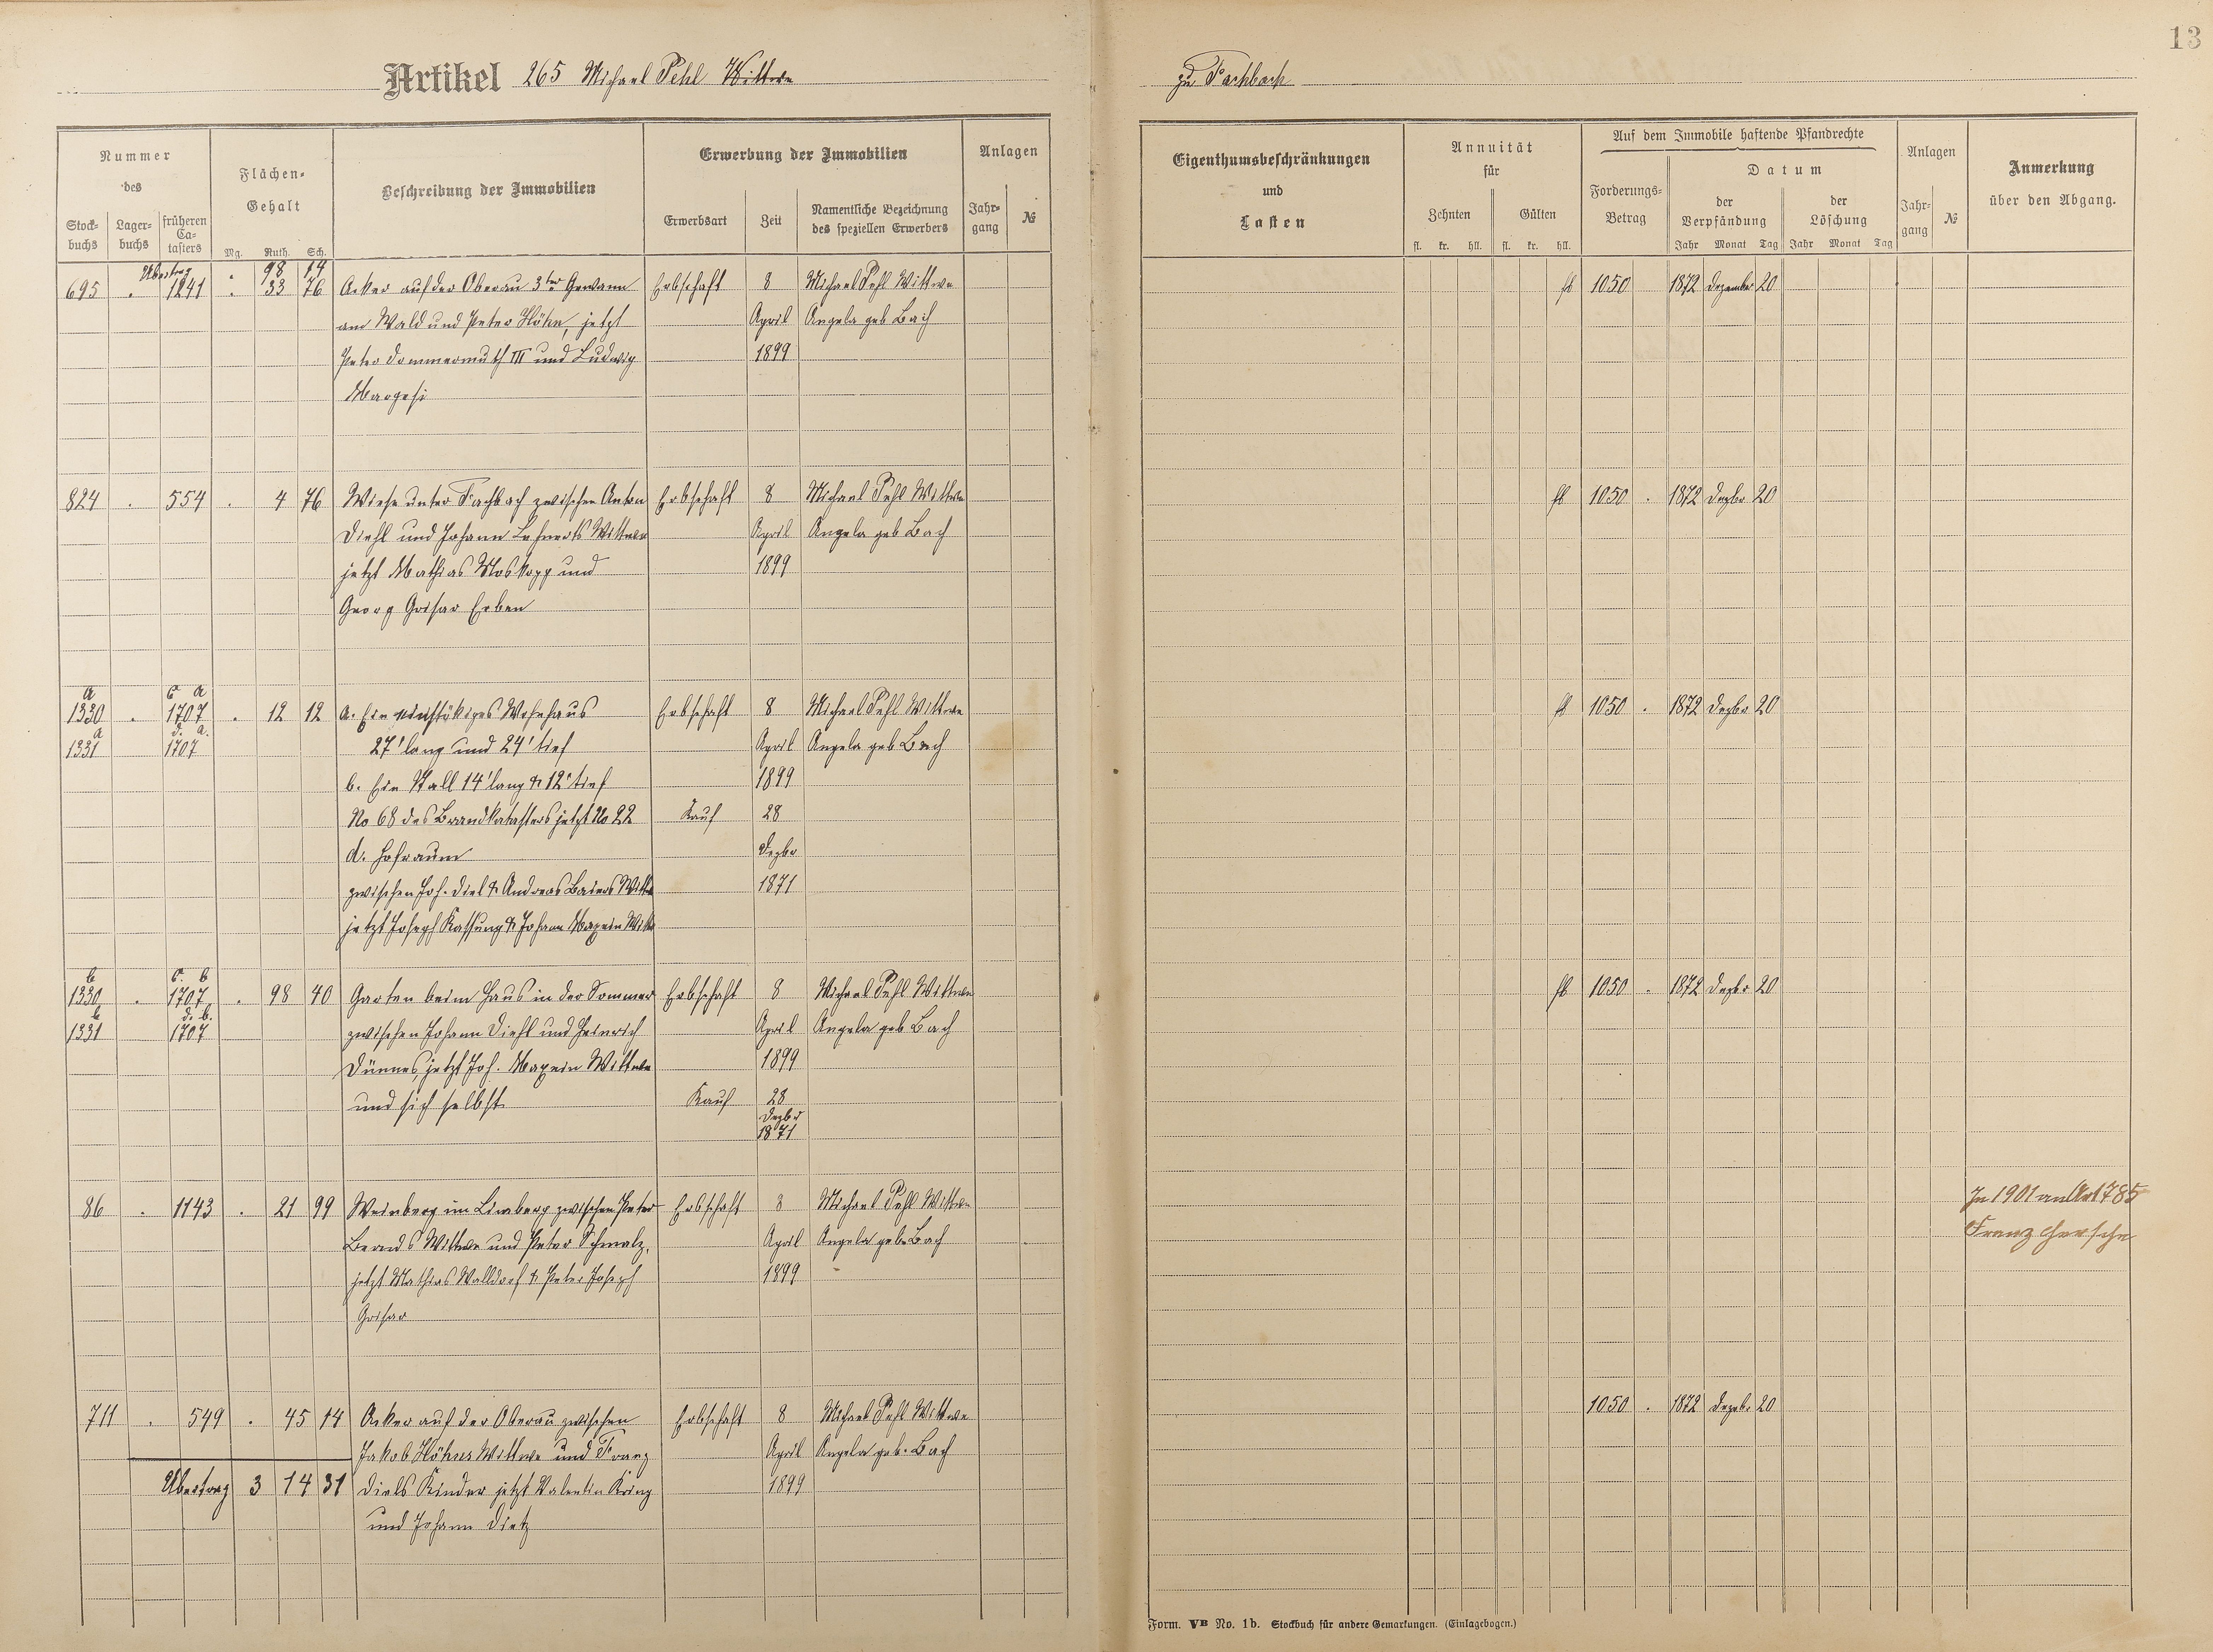 13
Artikel 265 Michael Pehl Wittwe
zu Fachbach
Nummer
des
Stock-
buchs
Lager-
buchs
früheren
Ca-
tasters
Flächen-
Gehalt
Mg. Ruth. Sch.
Beschreibung der Immobilien
Erwerbung der Immobilien
Erwerbsart
Zeit
Namentliche Bezeichnung
des speziellen Erwerbers
Anlagen
Jahr-
gang
№
Eigenthumsbeschränkungen
und
Lasten
Annuität
für
Zehnten
Gülten
fl. kr. hll. fl. kr. hll.
Auf dem Immobile haftende Pfandrechte
Forderungs-
Betrag
Datum
der
Verpfändung
der
Löschung
Jahr Monat Tag Jahr Monat Tag
Anlagen
Jahr-
gang
№
Anmerkung
über den Abgang.
Übertrag . 98 19
695 . 1241 . 33 76 Acker auf der Oberau 3ter Gewann Erbschaft 8 Michael Pehl Wittwe fl 1050 1872 Dezember 20
am Wald und Peter Höhn, jetzt April Angela geb Bach
Peter Dommermuth III und Ludwig 1899
Margesi
824 . 554 . 4 76 Wiese unter Fachbach zwischen Anton Erbschaft 8 Michael Pehl Wittwe fl 1050 . 1872 Dezbr 20
Diehl und Johann Lehnerts Wittwe April Angela geb Bach
jetzt Mathias Moskopp und 1899
Georg Grisar Erben
a c a
1330 . 1707 . 12 12 a. Ein einstökiges Wohnhaus Erbschaft 8 Michael Pehl Wittwe fl 1050 . 1872 Dezbr 20
a d. a.
1331 1707 27' lang und 24' tief April Angela geb Bach
b. Ein Stall 14' lang & 12' tief 1899
No 68 des Brandkatasters jetzt No 22 Kauf 28
d. Hofraum Dezbr
zwischen Joh. Diel & Andreas Baiers Wittw 1871
jetzt Joseph Kassung & Johann Maxein Wittw
b c. b
1330 . 1707 . 98 40 Garten beim Haus in der Sommer Erbschaft 8 Michael Pehl Wittwe fl 1050 . 1872 Dezbr 20
b d. b.
1331 1707 zwischen Johann Diehl und Heinrich April Angela geb Bach
Dünnes, jetzt Joh. Maxein Wittwe 1899
und sich selbst Kauf 28
Dezbr
1871
86 . 1143 . 21 99 Weinberg im Limberg zwischen Peter Erbschaft 8 Michael Pehl Wittwe In 1901 an Art 785
Bernds Wittwe und Peter Schmalz, April Angela geb. Bach Franz
jetzt Mathias Walldorf & Peter Joseph 1899
Grisar
711 . 549 . 45 14 Acker auf der Oberau zwischen Erbschaft 8 Michael Pehl Wittwe 1050 . 1872 Dezbr 20
Jakob Höhns Wittwe und Franz April Angela geb. Bach
Übertrag 3 14 31 Diels Kinder jetzt Valentin Kring 1899
und Johann Dietz
Form. VB No. 1b. Stockbuch für andere Gemarkungen. (Einlagebogen.)